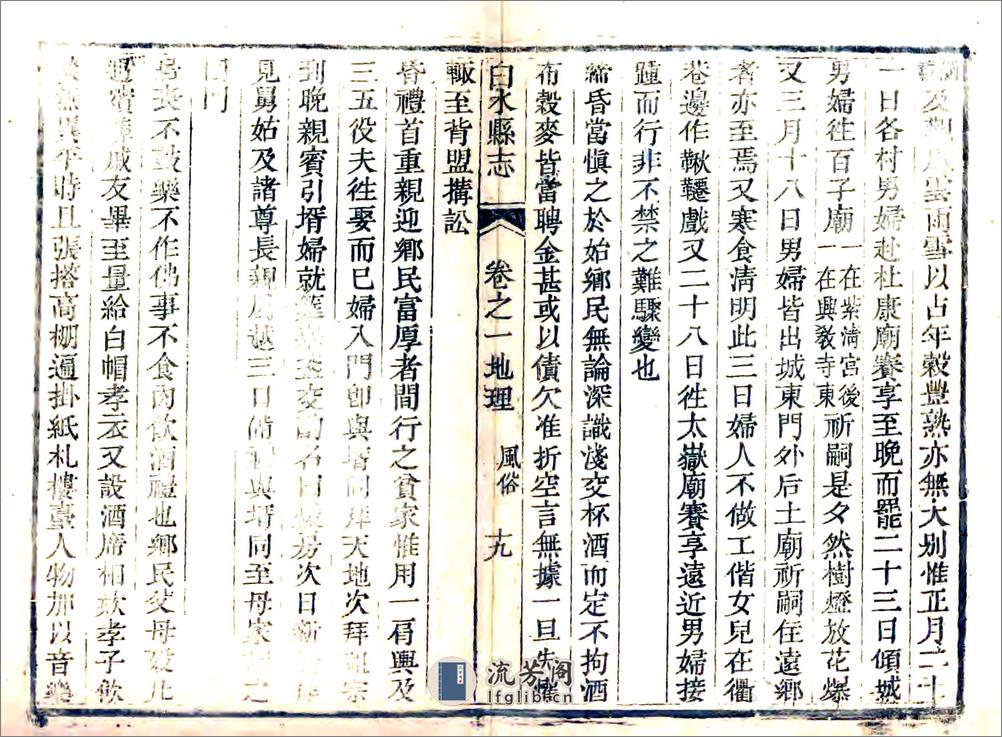 及觀風雲雨雪以占年穀豐熟亦無大别惟正月二十
一日各村男婦赴杜康廟賽享至晚而罷二十三日傾城
男婦徃百子廟一在紫清宮後一在興敎寺東祈嗣是夕然樹燈放花爆
又三月十八日男婦皆出城東門外后土廟祈嗣徃遠鄉
者亦至焉又寒食清明此三日婦人不做工偕女兒在衢
巷邊作鞦韆戲又二十八日徃太嶽廟賽享遠近男婦接
踵而行非不禁之難驟變也
締昏當慎之於始鄉民無論深識淺交杯酒而定不拘酒
布穀麥皆當聘金甚或以債欠准折空言無據一旦失
輙至背盟搆訟
白水縣志
卷之一地理
風俗
十九
昏禮首重親迎鄉民富厚者間行之貧家惟用一肩輿及
三五役夫徃娶而已婦入門卽與壻同拜天地次拜祖宗
到晚親賓引壻婦就筵 交 名曰 房次日新
見舅姑及諸尊長親 越三日備 與壻同至母家 之
回門
居丧不鼓樂不作佛事不食肉飲酒禮也鄉民父母發
遇賓 戚友畢至量給白帽孝衣又設酒席相 孝子飲
無異平時且張搭高棚遍掛紙札樓臺人物加以音樂
流芳阁
lfglib.com